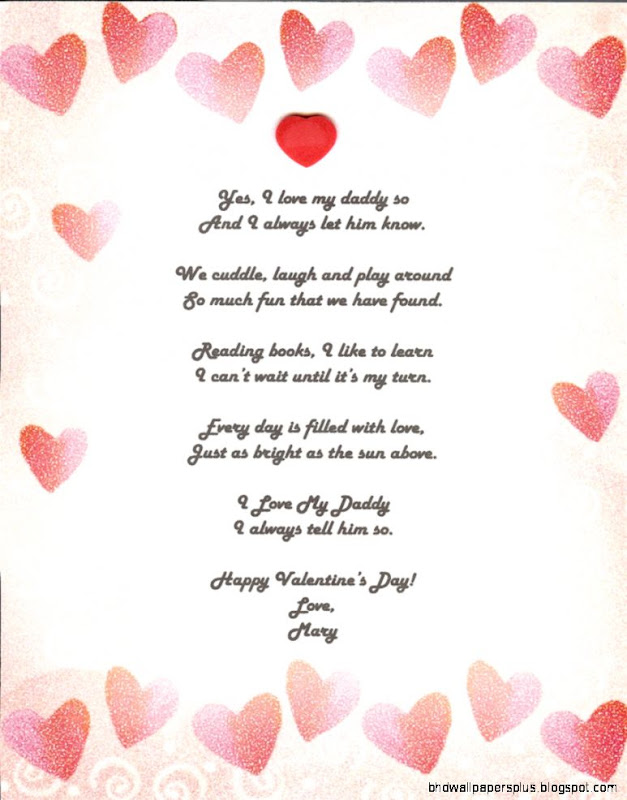 Yes, I love my daddy so
And I always let him know.
We cuddle, laugh and play around
So much fun that we have found.
Reading books, I like to learn
I can't wait until it's my turn.
Every day is filled with love,
Just as bright as the sun above.
I Love My Daddy
I always tell him so.
Happy Valentine's Day!
Love,
Mary
bhdwallpapersplus.blogspot.com